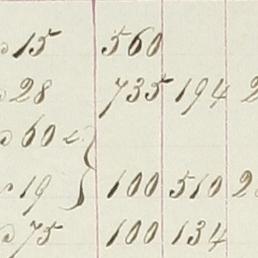 15 560
28 735 194 2
60 &
19 100 510 2
75 100 134